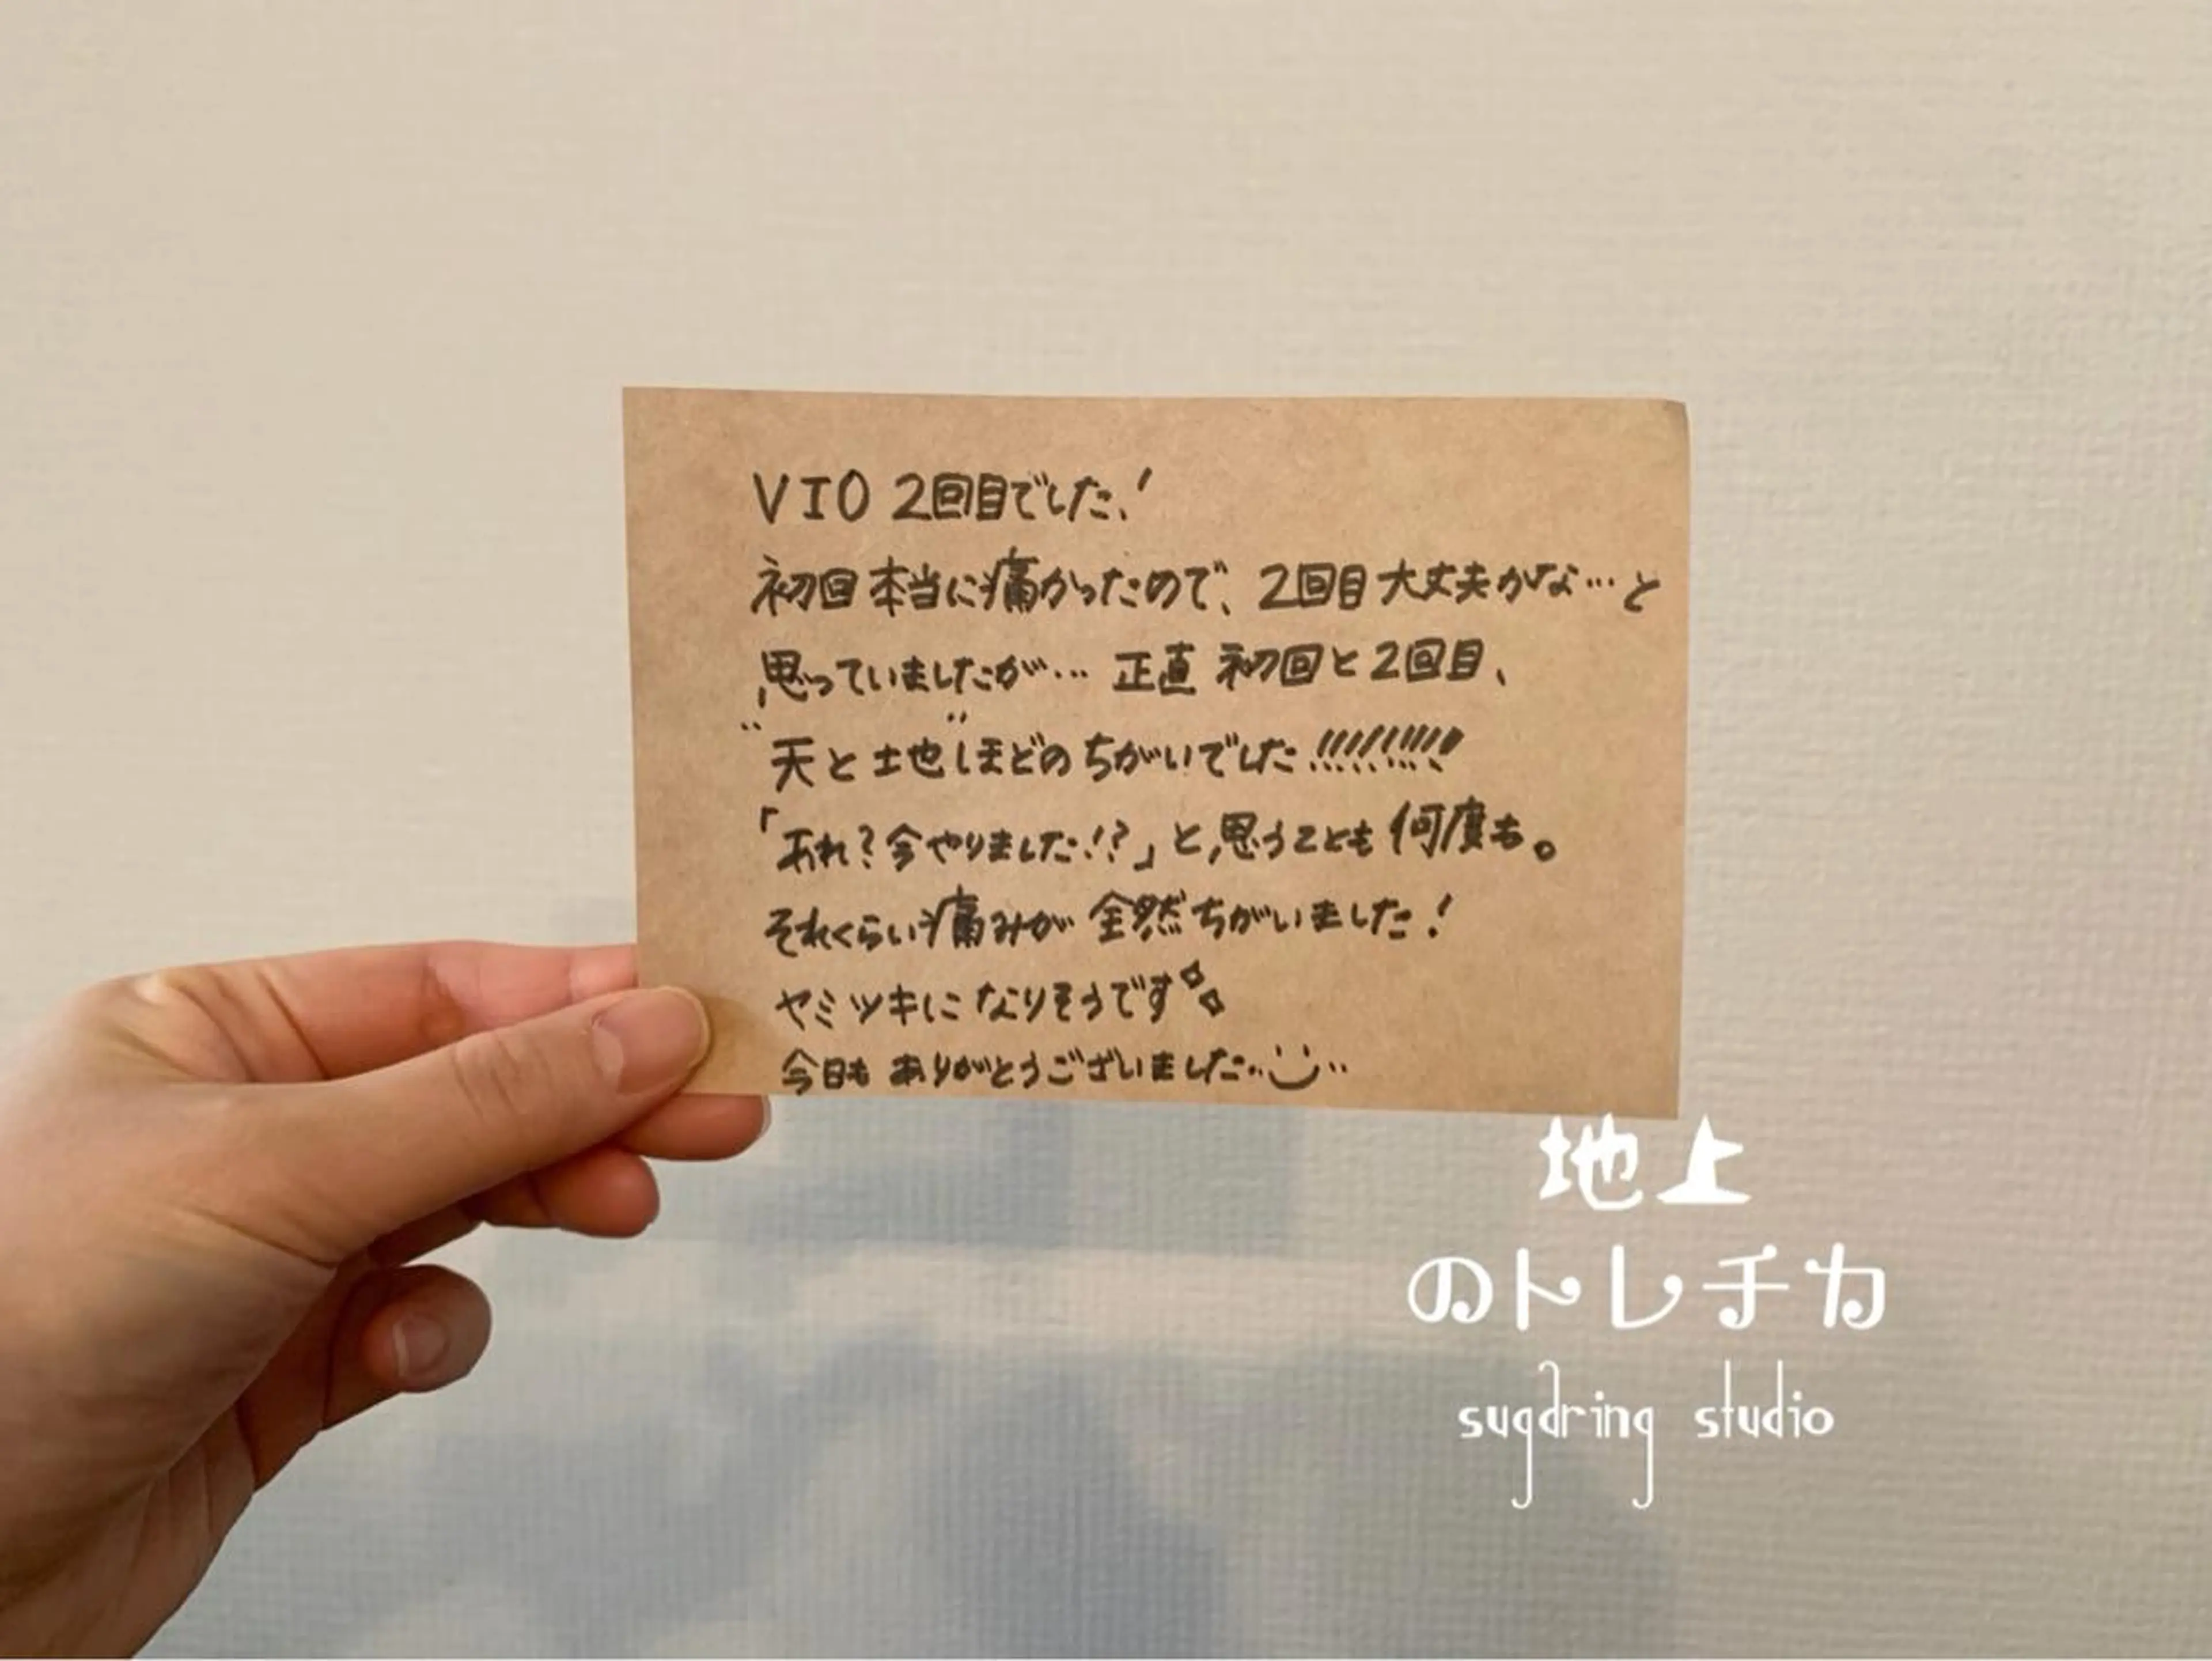 VIO 2回目でした!
初回本当に痛かったので、2回目大丈夫かな…と
思っていましたが… 正直 初回と2回目、
"天と地"ほどのちがいでした!!!!!!!!!
「あれ?今やりました!?」と思うことも何度も。
それくらい痛みが全然ちがいました!
ヤミツキになりそうです
今日もありがとうございました
地上
のトレチカ
sugaring studio